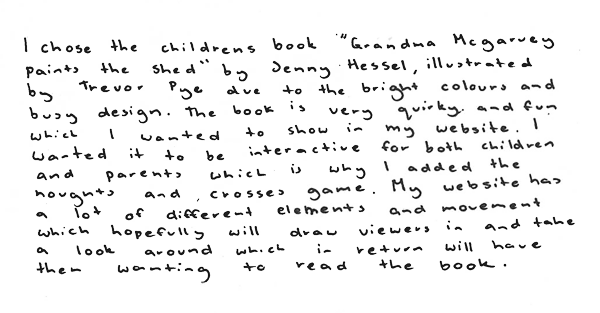 I chose the childrens book "Grandma Mcgarvey
paints the shed" by Jenny Hessel, illustrated
by Trevor Pye due to the bright colours and
busy design. The book is very quirky and fun
which I wanted to show in my website. I
wanted it to be interactive for both children
and parents which is why I added the
noughts and crosses game. My website has
a lot of different elements and movement
which hopefully will draw viewers in and take
a look around which in return will have
them wanting to read the book.